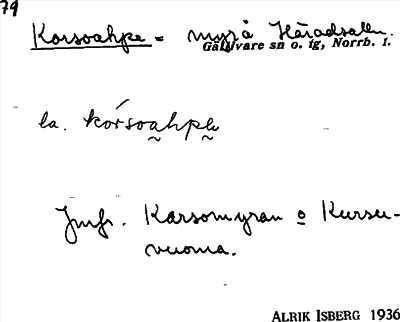 79
Korsoahpe = myr å Häradsallm.
Gällivare sn o. tg, Norrb. l.
la. kórsoa̰hpḛ
Jmfr. Karsomyran o Kursu-
vuoma.
ALRIK ISBERG 1936